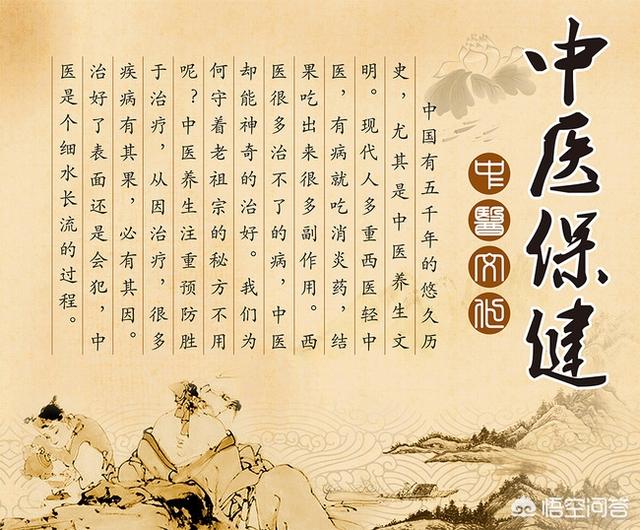 中医保健
中醫文化
中国有五千年的悠久历
史，尤其是中医养生文
明。现代人多重西医轻中
医，有病就吃消炎药，结
果吃出来很多副作用。西
医很多治不了的病，中医
却能神奇的治好。我们为
何守着老祖宗的秘方不用
呢？中医养生注重预防胜
于治疗，从因治疗，很多
疾病有其果，必有其因。
治好了表面还是会犯，中
医是个细水长流的过程。
悟空问答